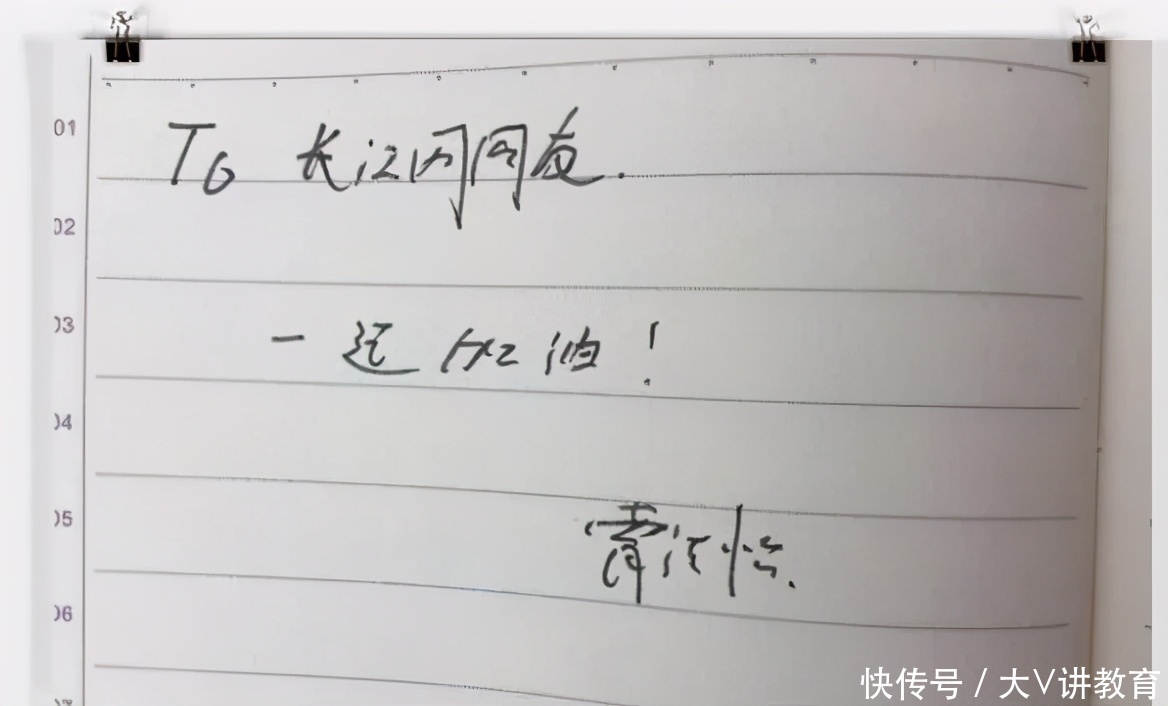 01 To 长江网网友.
02
03 一起加油!
04
05
06
快传号 / 大V讲教育